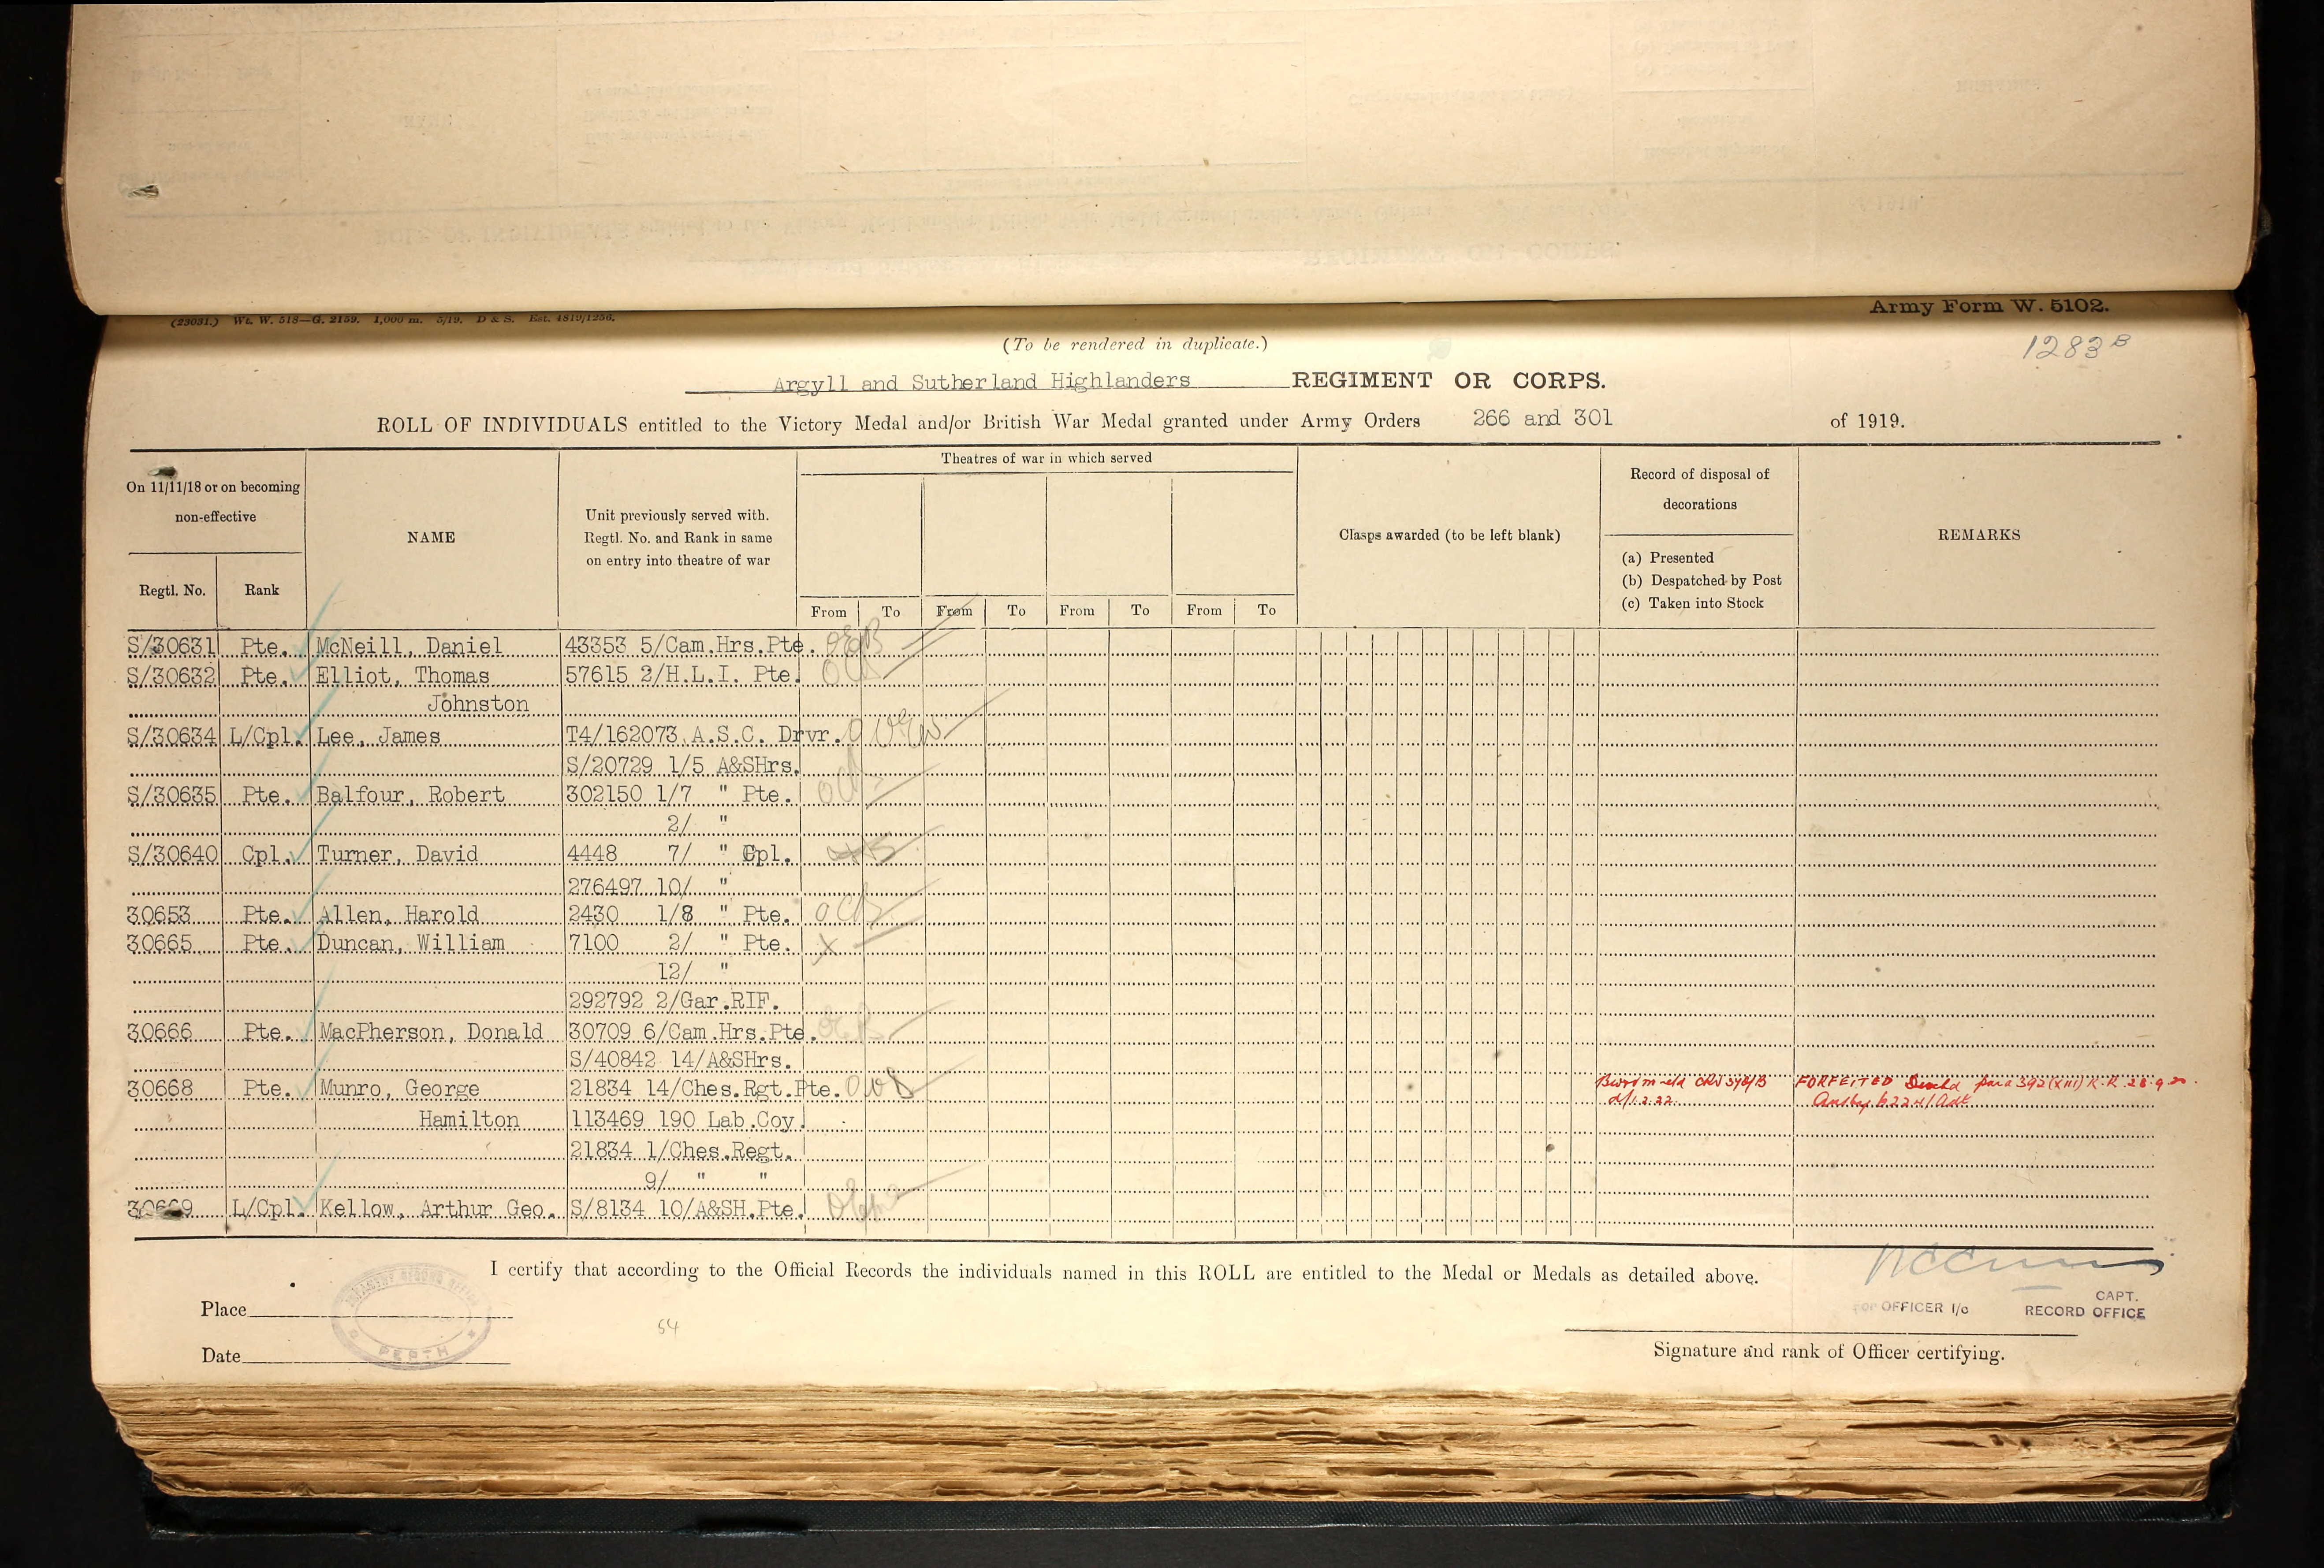 (23031.) Wt. W. 518—G. 2159. 1,000 m. 5/19. D & S. Est. 4819/1256.
Army Form W. 5102.
(To be rendered in duplicate.)
1283 B
Argyll and Sutherland Highlanders REGIMENT OR CORPS.
ROLL OF INDIVIDUALS entitled to the Victory Medal and/or British War Medal granted under Army Orders 266 and 301 of 1919.
On 11/11/18 or on becoming non-effective
Regtl. No.
Rank
NAME
Unit previously served with.
Regtl. No. and Rank in same
on entry into theatre of war
Theatres of war in which served
From To From To From To From To
Clasps awarded (to be left blank)
Record of disposal of
decorations
(a) Presented
(b) Despatched by Post
(c) Taken into Stock
REMARKS
S/30631 Pte. McNeill, Daniel 43353 5/Cam.Hrs.Pte.
S/30632 Pte. Elliot, Thomas 57615 2/H.L.I. Pte.
Johnston
S/30634 L/Cpl. Lee, James T4/162073 A.S.C. Drvr.
S/20729 1/5 A&SHrs.
S/30635 Pte. Balfour, Robert 302150 1/7 " Pte.
2/ "
S/30640 Cpl. Turner, David 4448 7/ " Cpl.
276497 10/ "
30653 Pte. Allen, Harold 2430 1/8 " Pte.
30665 Pte. Duncan, William 7100 2/ " Pte. X
12/ "
292792 2/Gar.RIF.
30666 Pte. MacPherson, Donald 30709 6/Cam.Hrs.Pte.
S/40842 14/A&SHrs.
30668 Pte. Munro, George 21834 14/Ches.Rgt.Pte. FORFEITED para 392 (XIII) K.R. 28.9.20.
Hamilton 113469 190 Lab.Coy.
21834 1/Ches.Regt.
9/ " "
30669 L/Cpl. Kellow, Arthur Geo. S/8134 10/A&SH.Pte.
I certify that according to the Official Records the individuals named in this ROLL are entitled to the Medal or Medals as detailed above.
Place
PERTH
54
Date
CAPT.
FOR OFFICER I/c RECORD OFFICE
Signature and rank of Officer certifying.